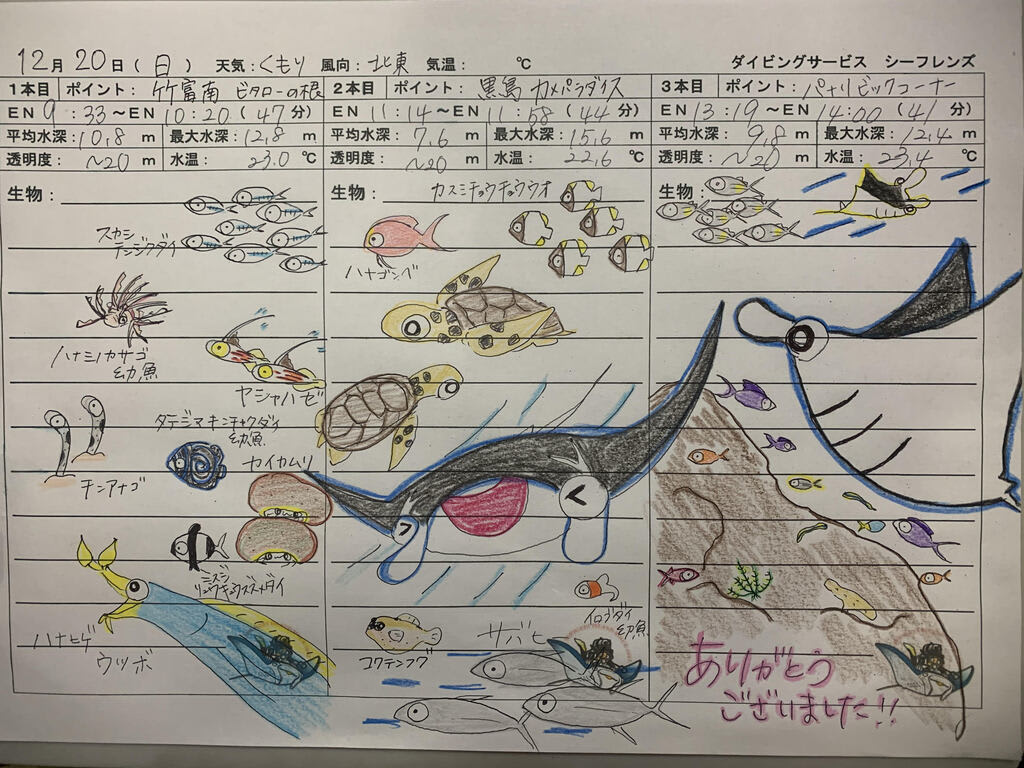 12月 20日(日) 天気:くもり 風向:北東 気温: ℃ ダイビングサービス シーフレンズ
1本目 ポイント: 竹富南 ビタローの根 2本目 ポイント: 黒島 カメパラダイス 3本目 ポイント: パナリ ビックコーナー
EN 9:33~EN 10:20(47分) EN 11:14~EN 11:58(44分) EN 13:19~EN 14:00(41分)
平均水深:10.8 m 最大水深:12.8 m 平均水深:7.6 m 最大水深:15.6 m 平均水深: 9.8 m 最大水深: 12.4 m
透明度: ~20 m 水温: 23.0 ℃ 透明度: ~20 m 水温: 22.6 ℃ 透明度: ~20 m 水温: 23.4 ℃
生物: 生物: カスミチョウチョウウオ 生物:
スカシ
テンジクダイ
ハナゴンベ
ハナミノカサゴ
幼魚
ヤシャハゼ
タテジマキンチャクダイ
幼魚
カイカムリ
チンアナゴ
ミスジ
リュウキュウスズメダイ
イロブダイ
幼魚
ハナヒゲ
ウツボ
コクテンフグ
サバヒー
ありがとう
ございました!!